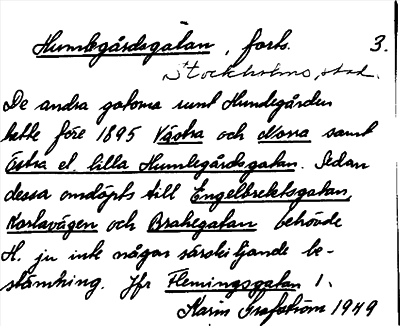 Humlegårdsgatan, forts. 3.
Stockholms, stad.
De andra gatorna runt Humlegården
hette före 1895 Västra och Norra samt
Östra el. lilla Humlegårdsgatan. Sedan
dessa omdöpts till Engelbrektsgatan,
Karlavägen och Brahegatan behövde
H. ju inte någon särskiljande be-
stämning. Jfr Flemingsgatan 1.
Karin Grafström 1949